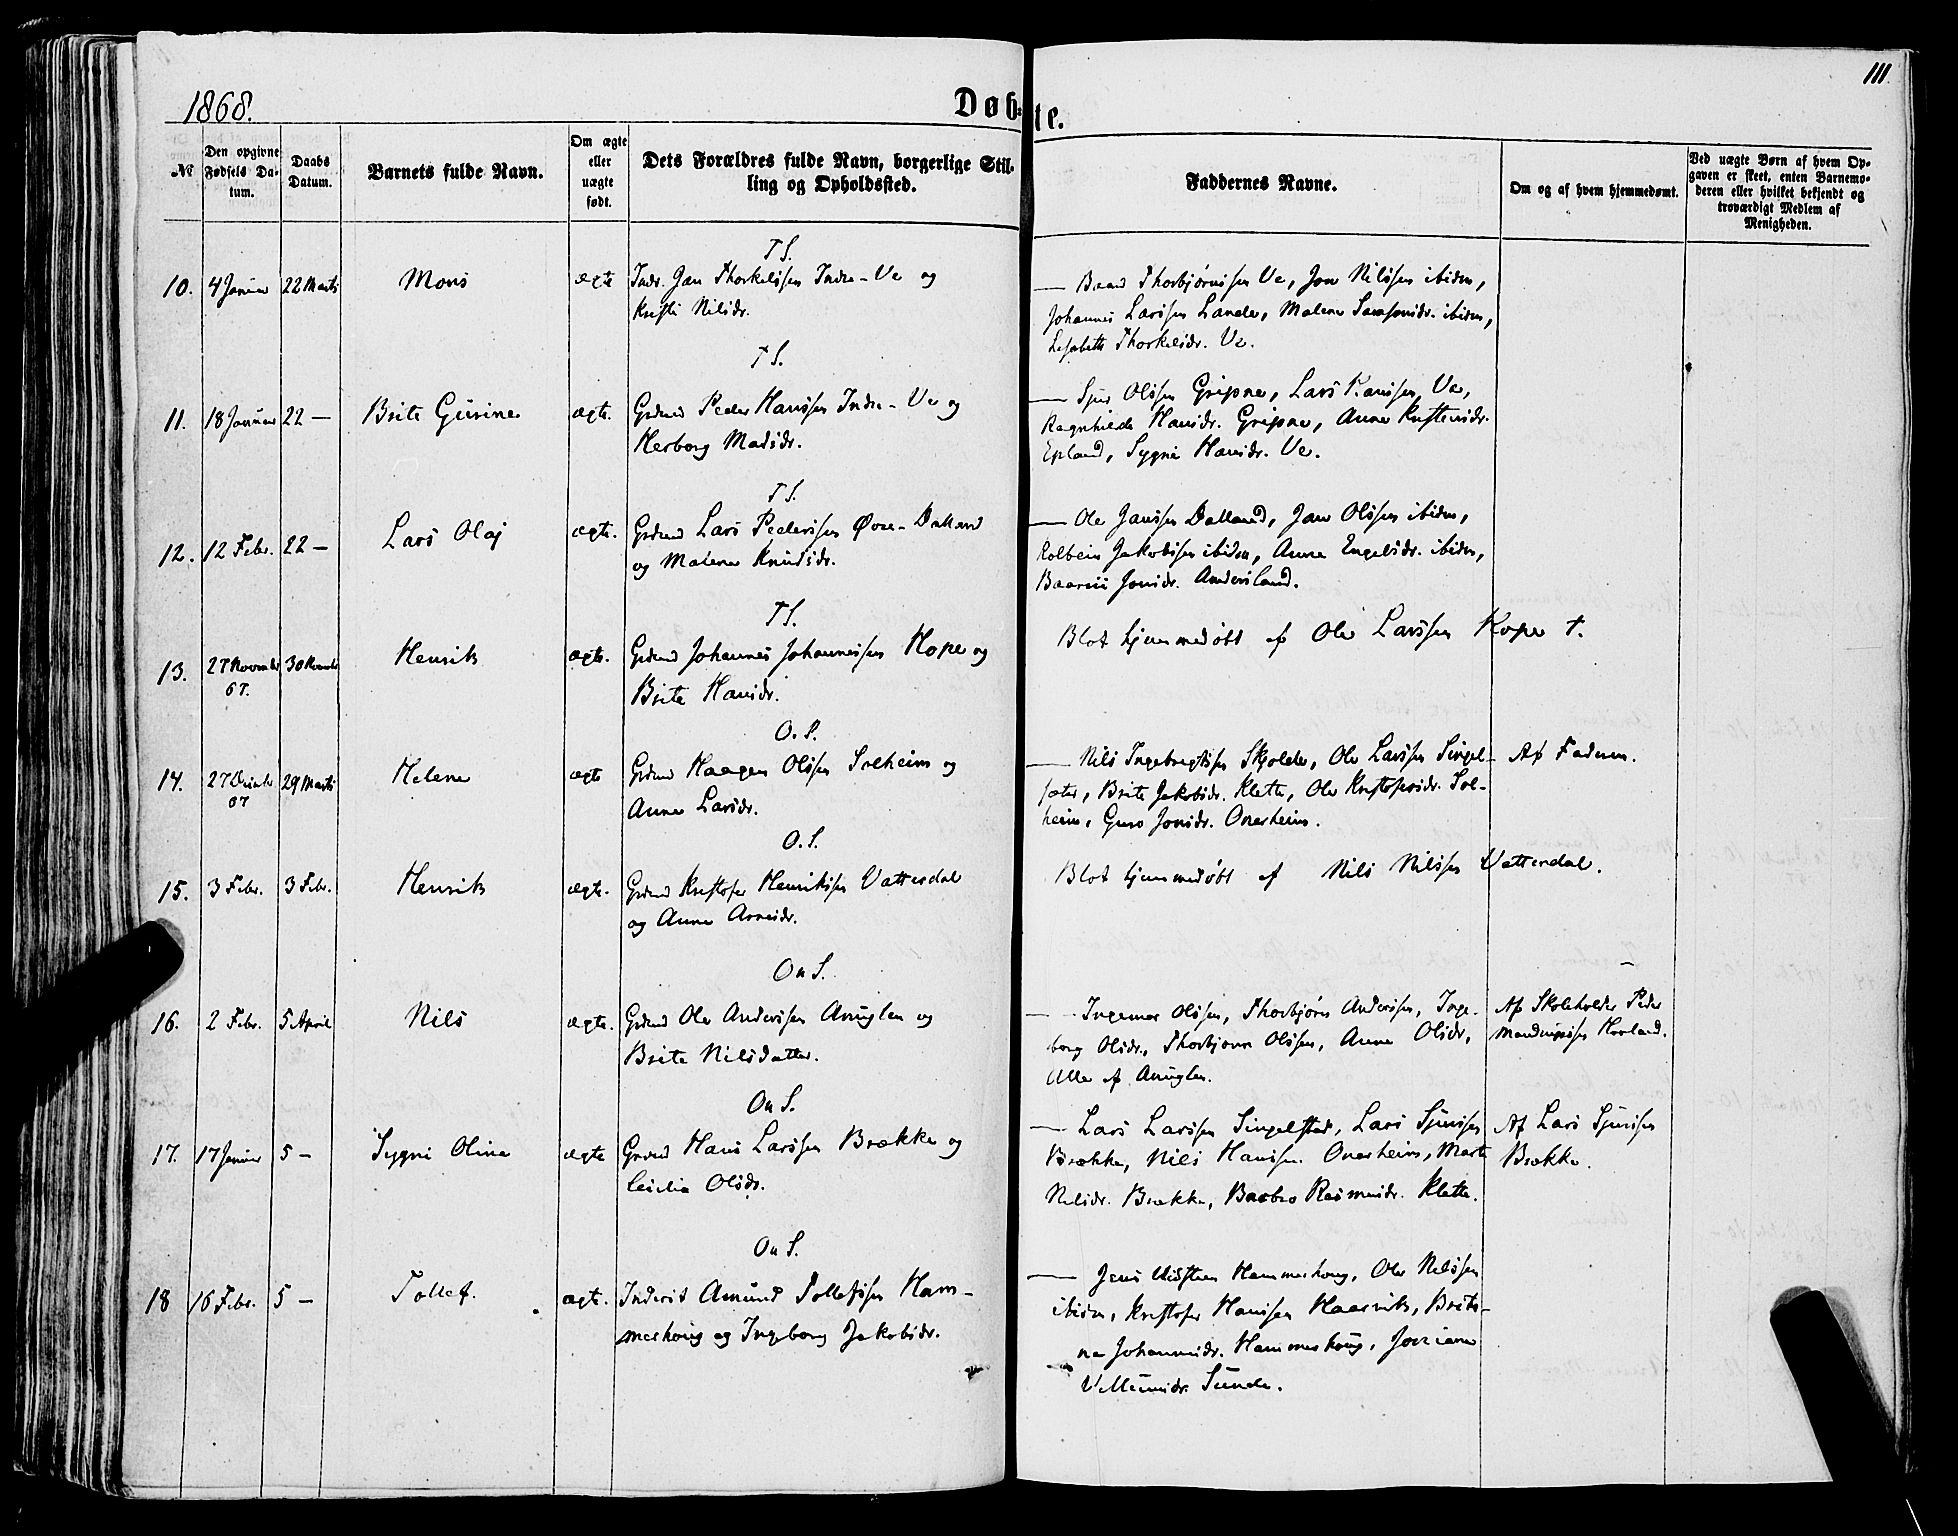 1868.
Døbte.
111.
№
Den opgivne Fødsels Datum.
Daabs Datum.
Barnets fulde Navn.
Om ægte eller uægte født.
Dets Forældres fulde Navn, borgerlige Stilling og Opholdssted.
Faddernes Navne.
Om og af hvem hjemmedømt.
Ved uægte Børn af hvem Opgaven er skeet, enten Barnemoderen eller hvilket bekjendt og troværdigt Medlem af Menigheden.
T S.
10. 4 Januar 22 Marts Mons ægte Indr. Jan Thorkelssen Indre-Ve og
Kristi Nilsdr.
— Thorbjørnssen Ve, Jon Nilssen ibidm,
Johannes Larssen Lande, Malene Samsonsdr. ibidm,
Lisabeth Thorkelsdr. Ve.
T S.
11. 18 Januar 22 — Brite Gurine ægte. Grdmd Peder Hanssen Indre-Ve og
Herborg Madsdr.
— Sjur Olssen Gripne, Lars Hanssen Ve,
Ragnhilde Hansdr. Gripne, Anne Kristensdr.
Epland, Sygni Hansdr. Ve.
T S.
12. 12 Febr. 22 — Lars Olaj ægte. Grdmd Lars Pederssen Øvre-Dalland
og Malene Knudsdr.
— Ole Janssen Dalland, Jan Olssen ibidm,
Kolbein Jakobssen ibidm, Anne Engelsdr. ibidm,
Jonsdr. Andersland.
T S.
13. 27 Novembr 67. 30 Novembr Henrik ægte. Grdmd Johannes Johannessen Hope og
Brite Hansdr.
Blot hjemmedøbt af Ole Larssen Hope †.
O. S.
14. 27 Decembr 67 29 Marts Helene ægte Grdmd Haagen Olssen Solheim og
Anne Larsdr.
— Nils Ingebregtssen Skjolde, Ole Larssen Singel-
sæter, Brite Jakobsdr. Klette, Ole Kristofersdr. Sol-
heim, Guro Jonsdr. Onarheim.
Af Faderen.
O. S.
15. 3 Febr. 3 Febr. Henrik ægte. Grdmd Kristofer Henrikssen Vattesdal
og Anne Arnesdr.
Blot hjemmedøbt af Nils Nilssen Vattendal.
On S.
16. 2 Febr. 5 April Nils ægte. Grdmd Ole Anderssen Anuglen og
Brite Nilsdatter.
— Ingemar Olssen, Thorbjørn Anderssen, Inge-
borg Olsdr., Thorbjørn Olssen, Anne Olsdr,
Alle af Anuglen.
Af Skoleholder Peder
Hovland.
On S.
17. 17 Januar 5 — Sygni Oline ægte Grdmd Hans Larssen Brække og
Cicilia Olsdr.
— Lars Larssen Singelstad, Lars Sjurssen
Brække, Nils Hanssen Onarheim, Marte
Nilsdr. Brække, Barbro Rasmusdr. Klette.
Af Lars Sjurssen
Brække.
On S.
18 16 Febr. 5 — Tollef. ægte. Inderst Amund Tollefssen Ham-
merhoug og Ingeborg Jakobsdr.
— Jens Hammerhoug, Ole Nilssen
ibidm, Kristofer Hanssen Haarvik, Brite-
ne Johannesdr. Hammerhoug,
Sunde.